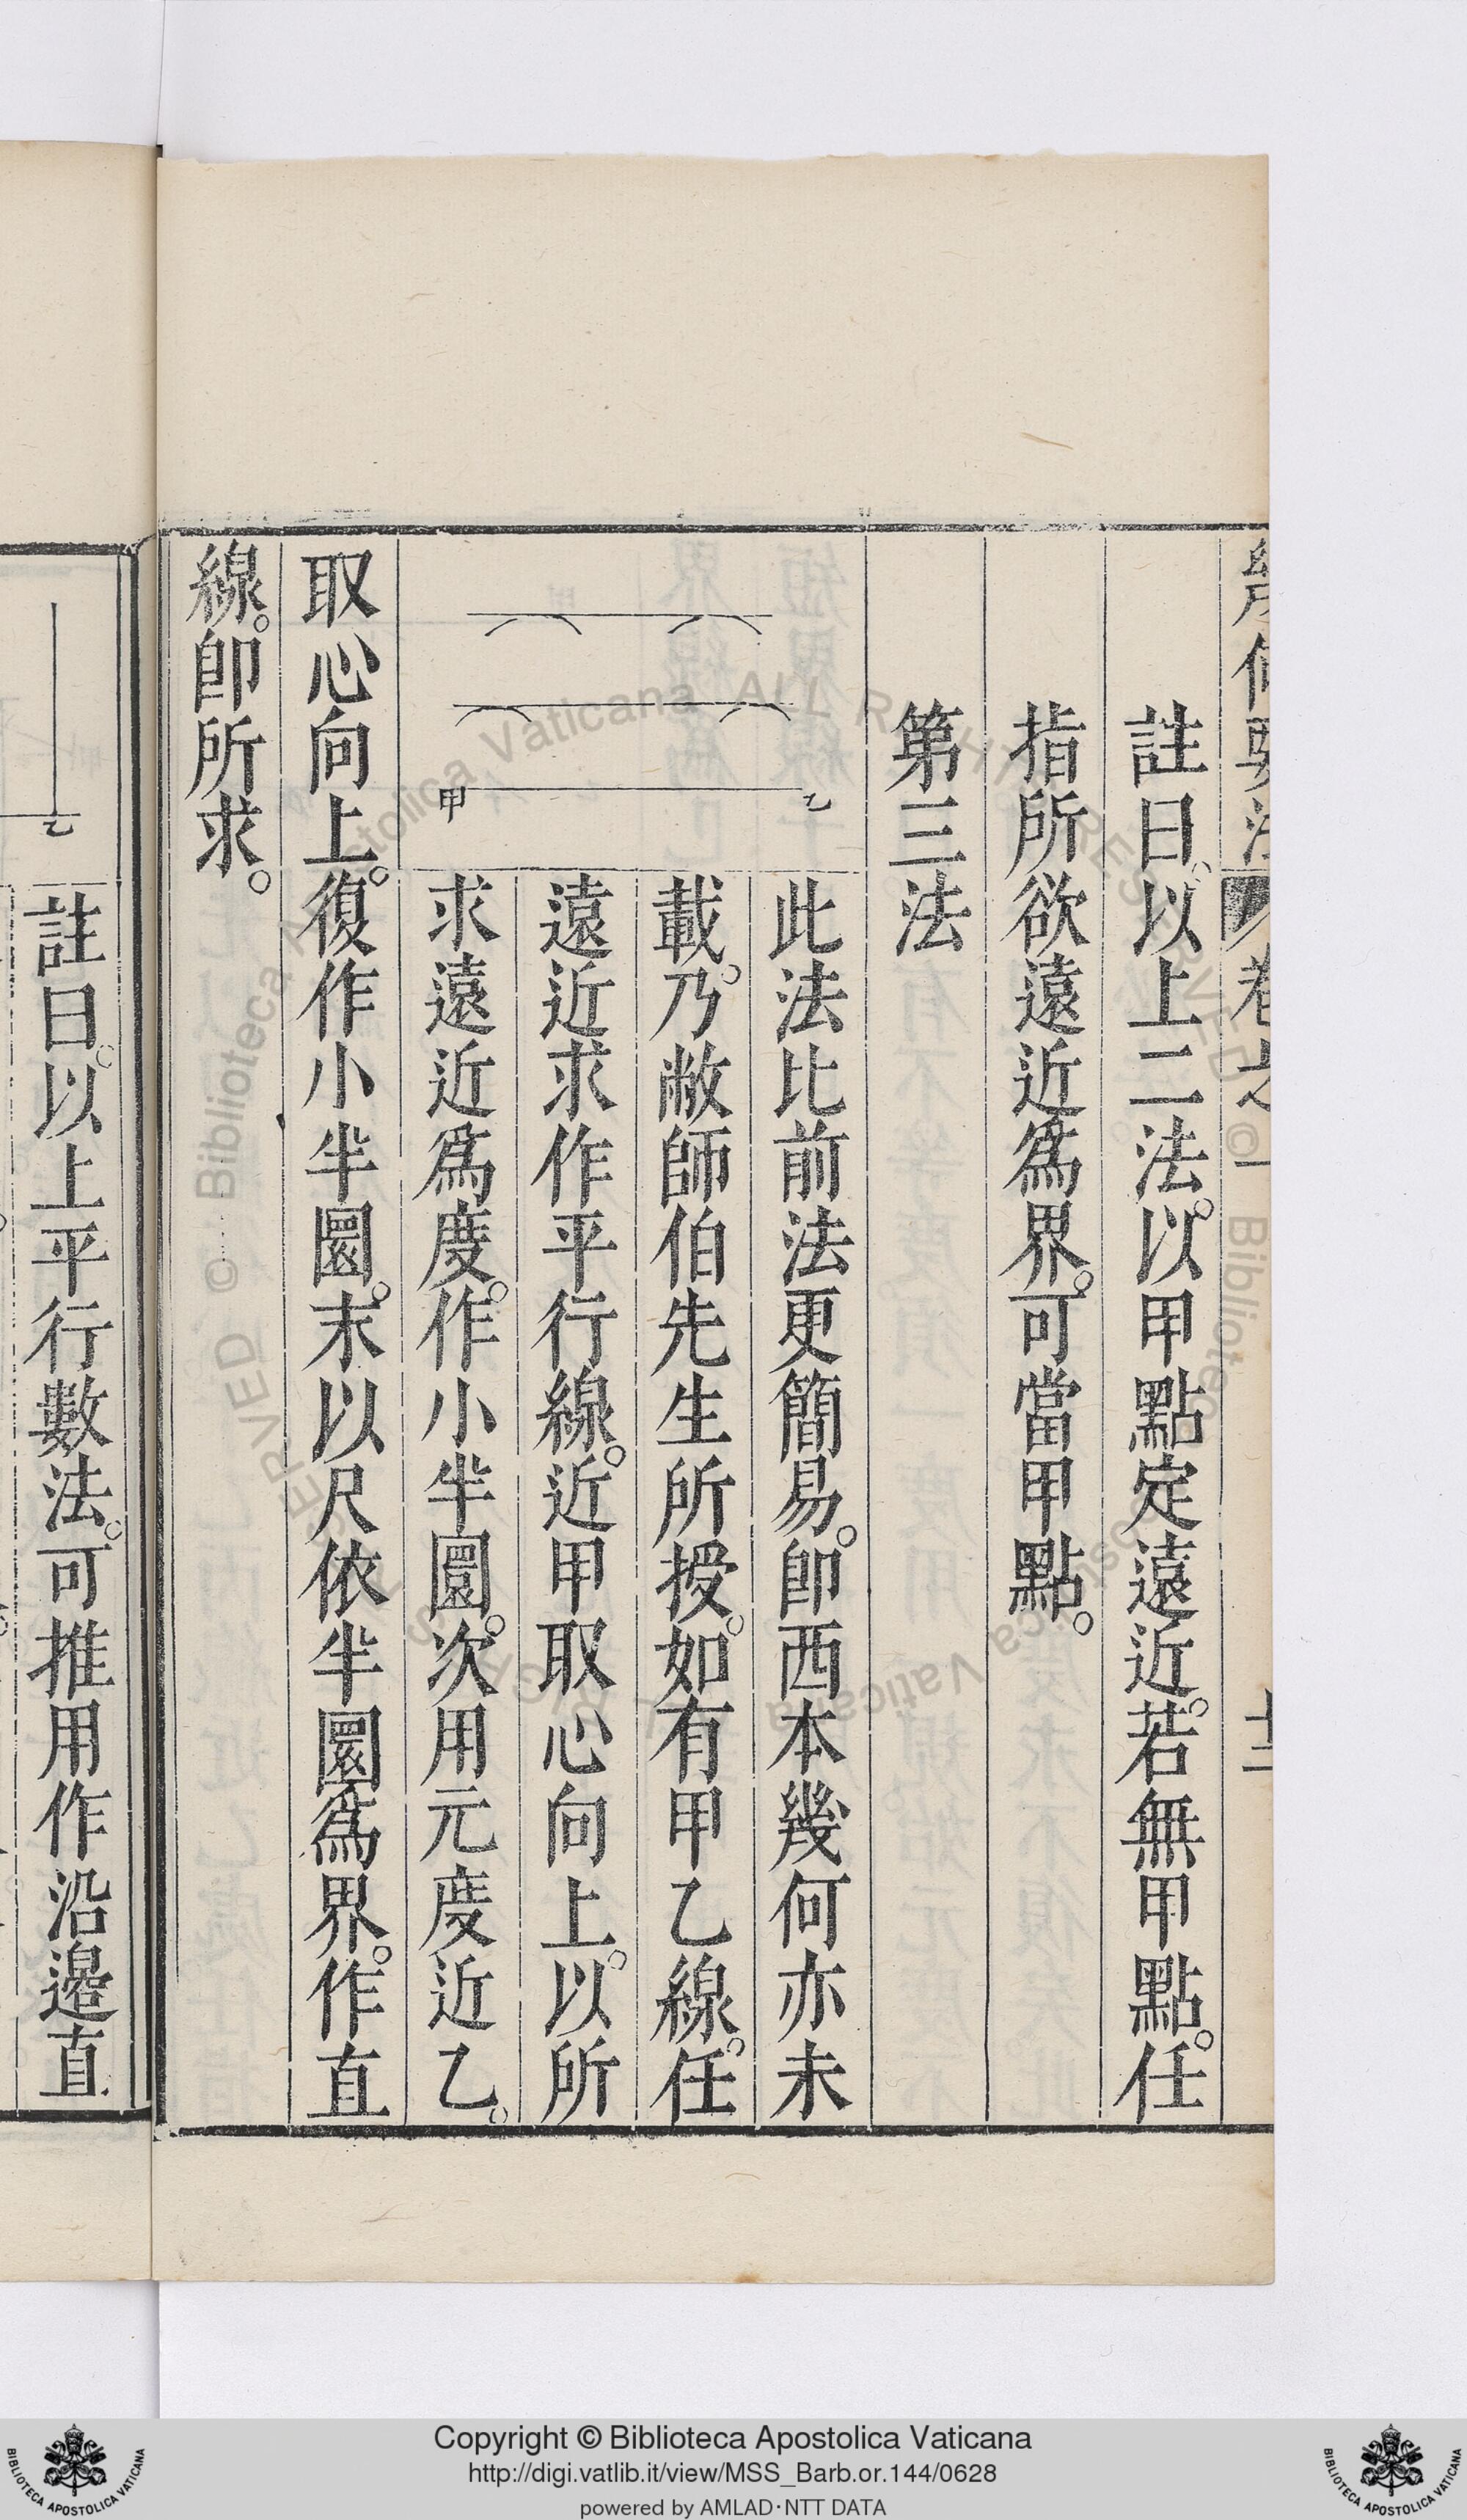 幾何要法 卷之一 十二
註曰。以上二法。以甲點定遠近。若無甲點。任
指所欲遠近爲界。可當甲點。
第三法
此法比前法更簡易。卽西本幾何亦未
載。乃敝師伯先生所授。如有甲乙線。任
遠近求作平行線。近甲取心向上。以所
求遠近爲度。作小半圜。次用元度近乙。
乙
甲
取心向上。復作小半圜。末以尺依半圜爲界。作直
線。卽所求。
乙
註曰。以上平行數法。可推用作沿邊直
Biblioteca Apostolica Vaticana ALL RIGHTS RESERVED © Biblioteca Apostolica Vaticana ALL RIGHTS RESERVED ©
Copyright © Biblioteca Apostolica Vaticana
http://digi.vatlib.it/view/MSS_Barb.or.144/0628
powered by AMLAD·NTT DATA
BIBLIOTECA APOSTOLICA VATICANA
BIBLIOTECA APOSTOLICA VATICANA